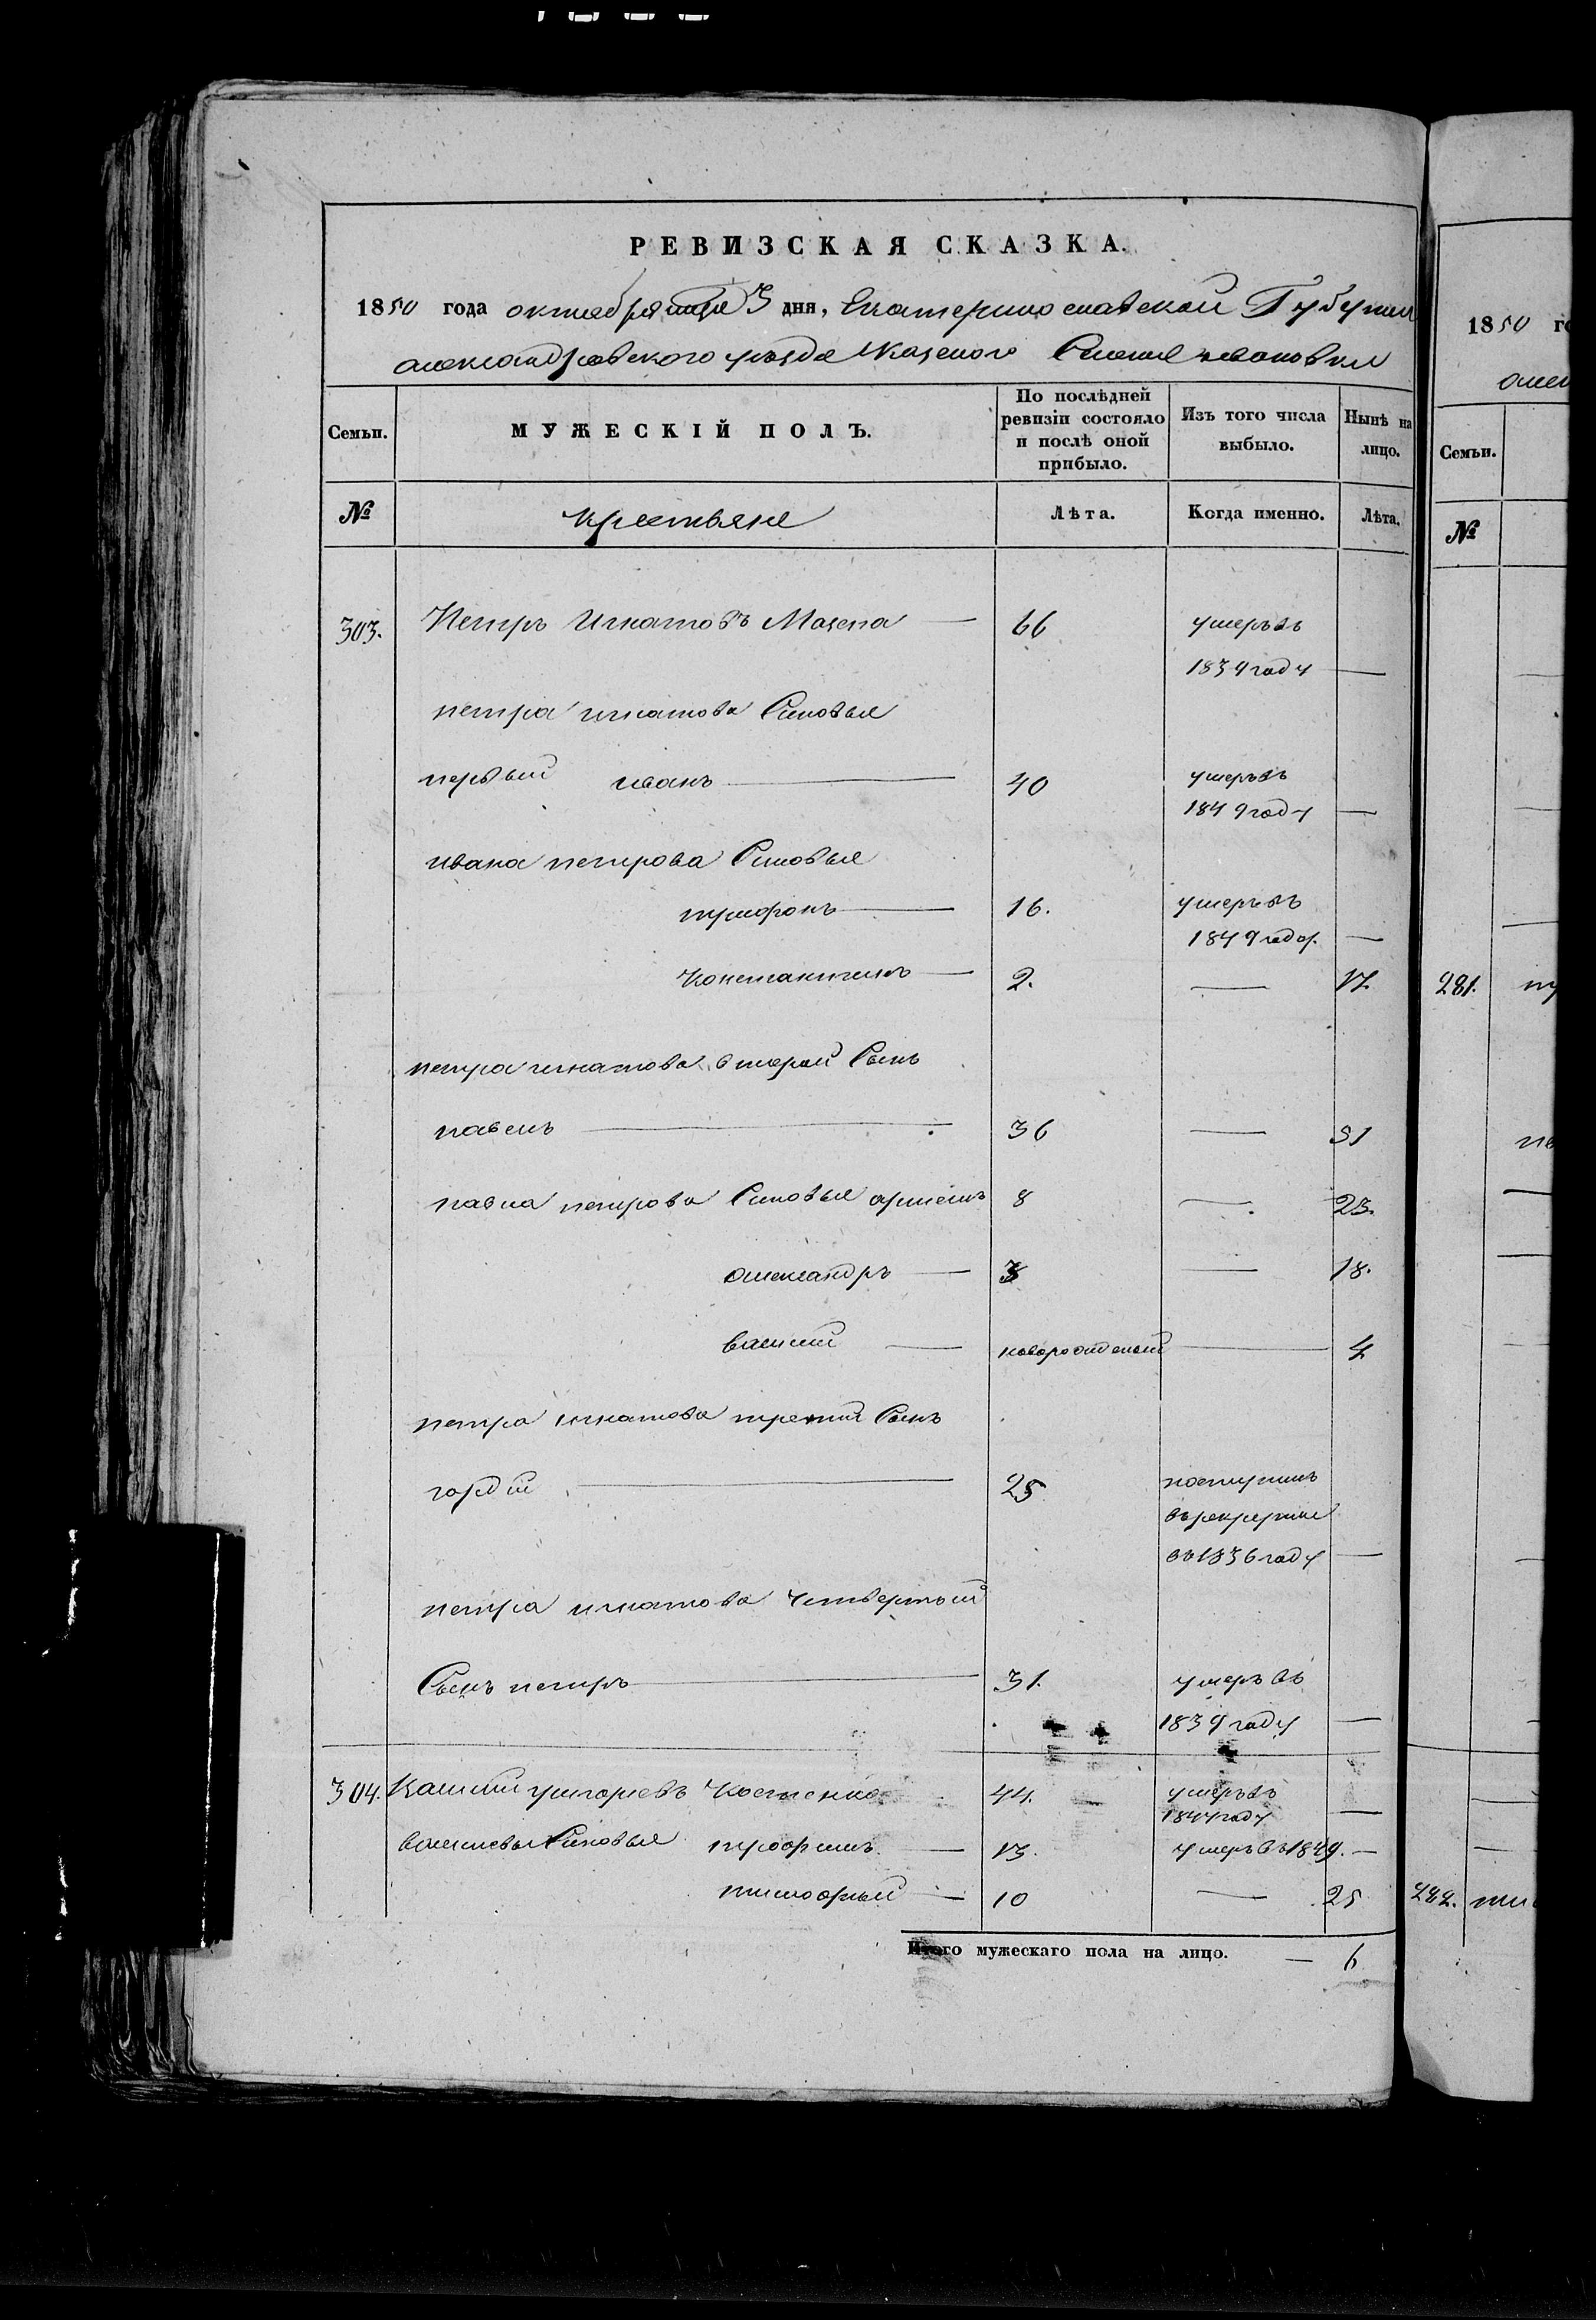 РЕВИЗСКАЯ СКАЗКА.
1850 года октября 3 дня, Екатеринославской Губернии
александровского уезда казеного Селения ивановки
Семьи. МУЖЕСКІЙ ПОЛЪ. По послѣдней ревизіи состояло и послѣ оной прибыло. Изъ того числа выбыло. Нынѣ на лицо.
№ крестьяне Лѣта. Когда именно. Лѣта.
303. Петръ Игнатовъ Мазепа — 66 умеръ въ
1839 году —
петра игнатова Синовья
первый иванъ — 40 умеръ въ
1849 году —
ивана петрова Синовья
труфонъ — 16. умеръ въ
1849 году. —
Константинъ — 2. — 17.
петра игнатова второй Сынъ
павелъ — 36 — 51
павла петрова Синовья артемъ 8 — 23.
александръ — 3 — 18.
василий — новорожденый — 4
петра игнатова третий Сынъ
гордій — 25 поступилъ
въ рекруты
въ 1836 году —
петра игнатова Четвертый
Сынъ петръ — 31. умеръ въ
1839 году —
304. Василий григорьевъ Костенко 44. — умеръ въ
1844 году —
василиевы Синовья трофимъ — 13. умеръ въ 1849. —
тимофей — 10 — 25
Итого мужескаго пола на лицо. — 6
1850 го
алек
Семьи.
№
281.
282. тим